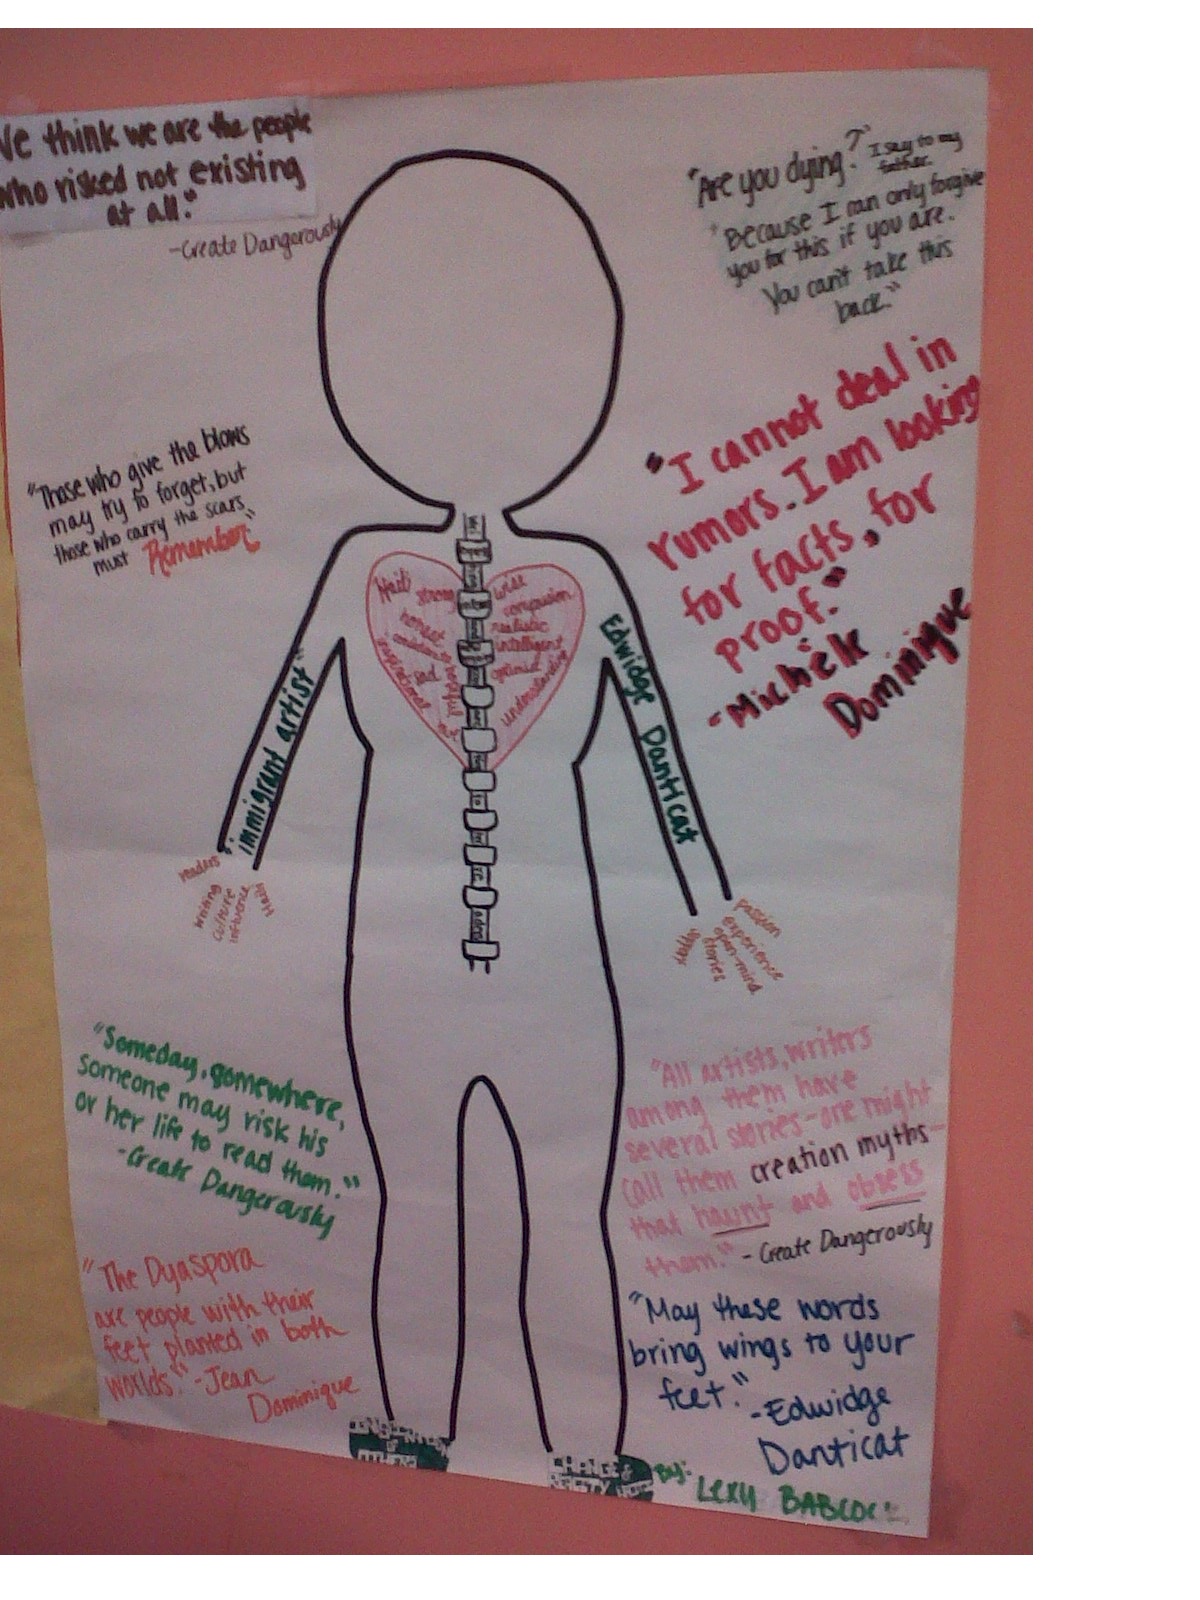 We think we are the people
who risked not existing
at all."
-Create Dangerously
"Are you dying?" I say to my
father.
"Because I can only forgive
you for this if you are.
You can't take this
back."
"I cannot deal in
rumors. I am looking
for facts, for
proof."
-Michèle
Dominique
"Those who give the blows
may try to forget, but
those who carry the scars
must Remember"
Haiti
strong
honest
sad
hopeful
inspirational
wise
compassion
realistic
intelligent
optimist
understanding
"immigrant artist"
Edwidge Danticat
readers
writing
culture
influence
Haiti
passion
experience
open-mind
stories
"Someday, somewhere,
someone may risk his
or her life to read them."
-Create Dangerously
"All artists, writers
among them have
several stories-one might
call them creation myths-
that haunt and obsess
them." - Create Dangerously
"The Dyaspora
are people with their
feet planted in both
worlds." -Jean
Dominique
"May these words
bring wings to your
feet."
-Edwidge
Danticat
CHANGE
By:
Lexy BABCOC